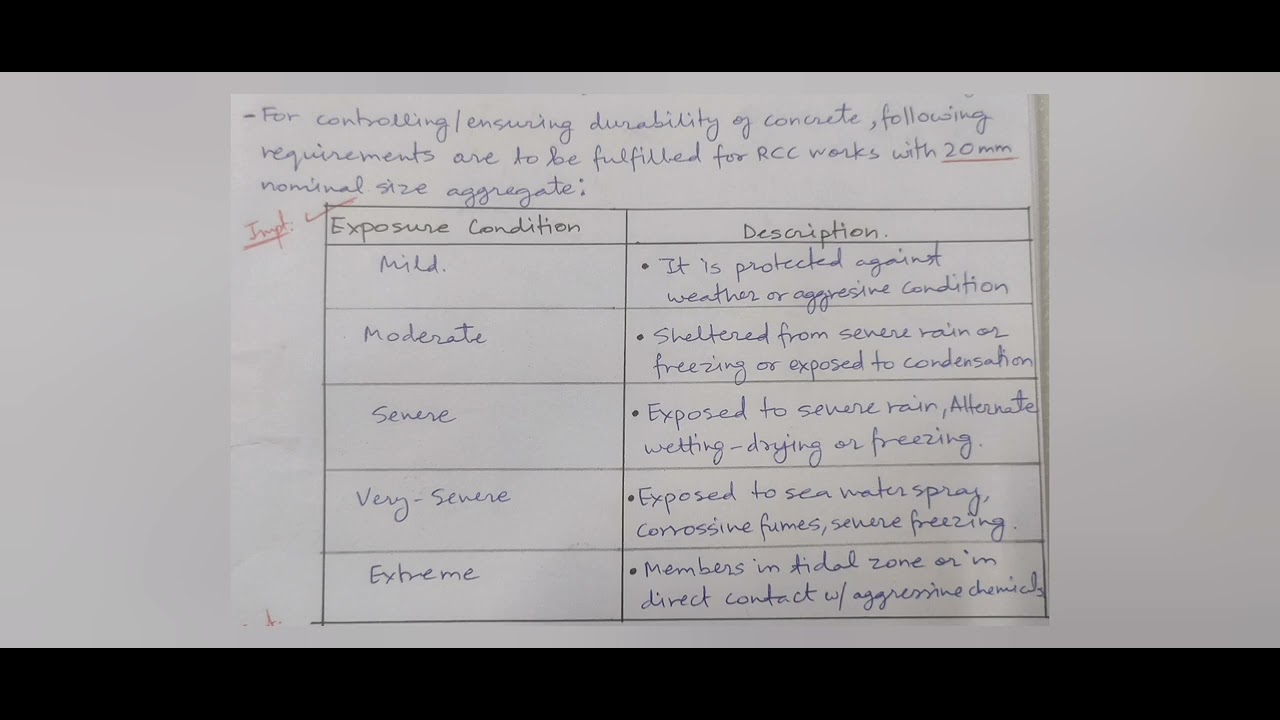 - For controlling/ensuring durability of concrete, following
requirements are to be fulfilled for RCC works with 20mm
nominal size aggregate:
Impt.
Exposure Condition
Description.
Mild.
• It is protected against
weather or aggresive condition
Moderate
• Sheltered from severe rain or
freezing or exposed to condensation
Severe
• Exposed to severe rain, Alternate
wetting-drying or freezing.
Very-Severe
• Exposed to sea water spray,
corrossive fumes, severe freezing.
Extreme
• Members in tidal zone or in
direct contact w/ aggressive chemicals